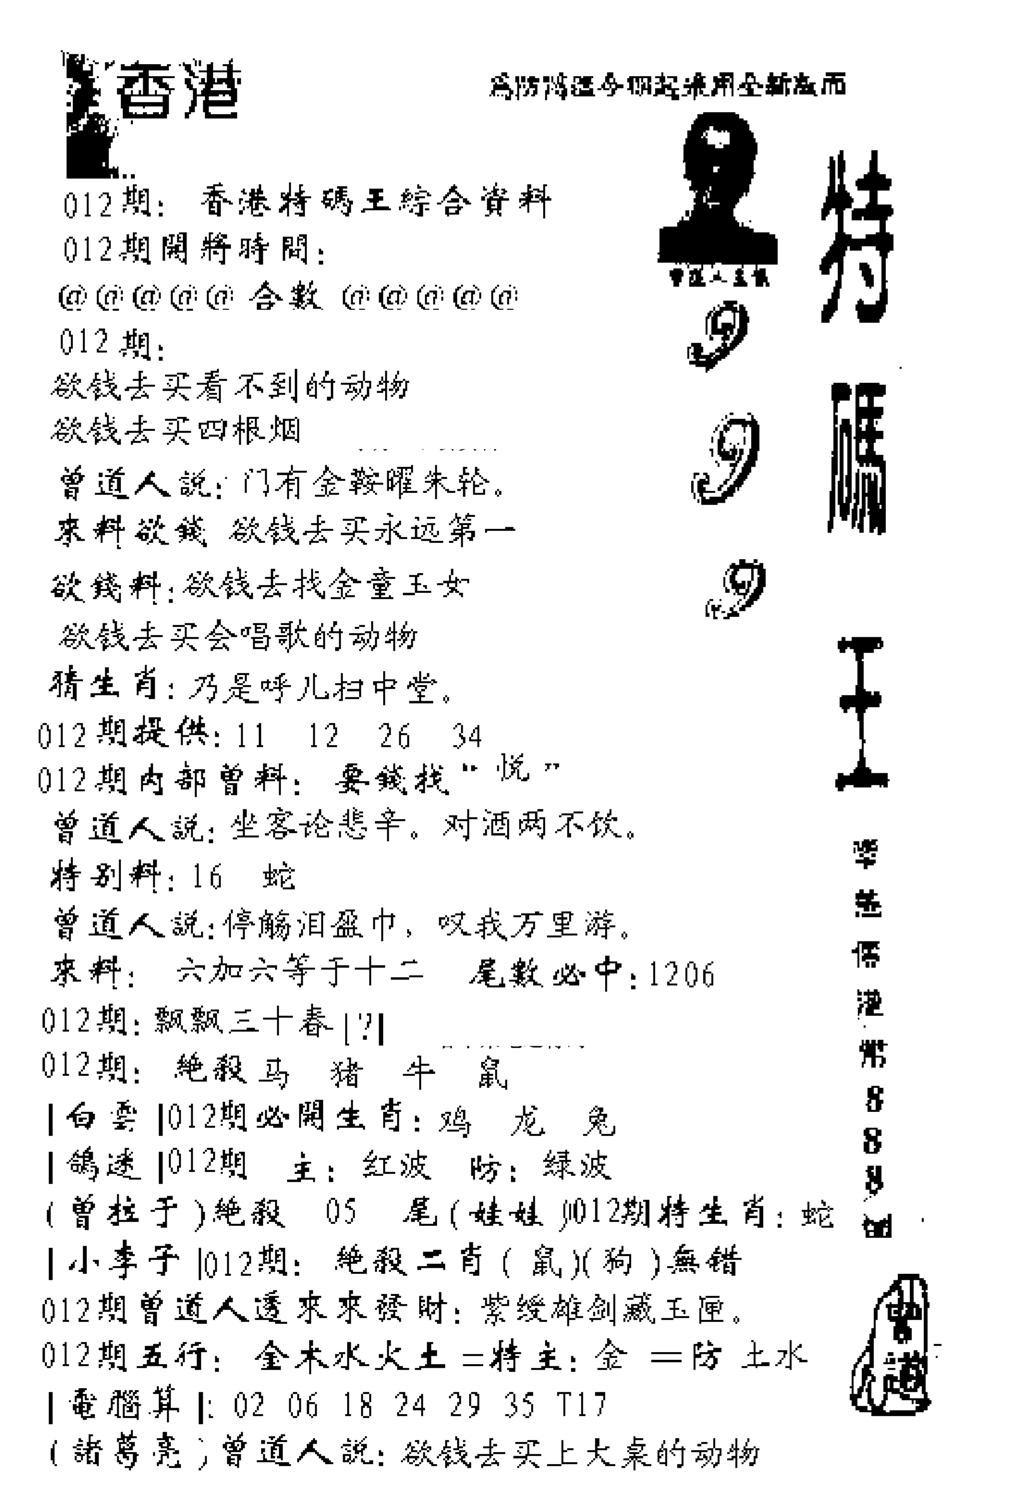 香港
012期：香港特碼王綜合資料
012期開將時間：
@@@@@ 合數 @@@@@
012期：
欲钱去买看不到的动物
欲钱去买四根烟
曾道人説：门有金鞍曜朱轮。
來料欲錢 欲钱去买永远第一
欲錢料：欲钱去找金童玉女
欲钱去买会唱歌的动物
猜生肖：乃是呼儿扫中堂。
012期提供：11 12 26 34
012期内部曾料：要錢找“悦”
曾道人説：坐客论悲辛。对酒两不饮。
特别料：16 蛇
曾道人説：停觞泪盈巾，叹我万里游。
來料：六加六等于十二 尾數必中：1206
012期：飘飘三十春|?|
012期：絶殺马 猪 牛 鼠
|白雲|012期必開生肖：鸡 龙 兔
|鴿迷|012期 主：红波 防：绿波
(曾拉于)絶殺 05 尾(娃娃)012期特生肖：蛇
|小李子|012期：絶殺二肖(鼠)(狗)無错
012期曾道人透來來發財：紫绶雄剑藏玉匣。
012期五行：金木水火土=特主：金 =防 土水
|電腦算|：02 06 18 24 29 35 T17
(諸葛亮)曾道人説：欲钱去买上大桌的动物
特碼王
999
港幣888